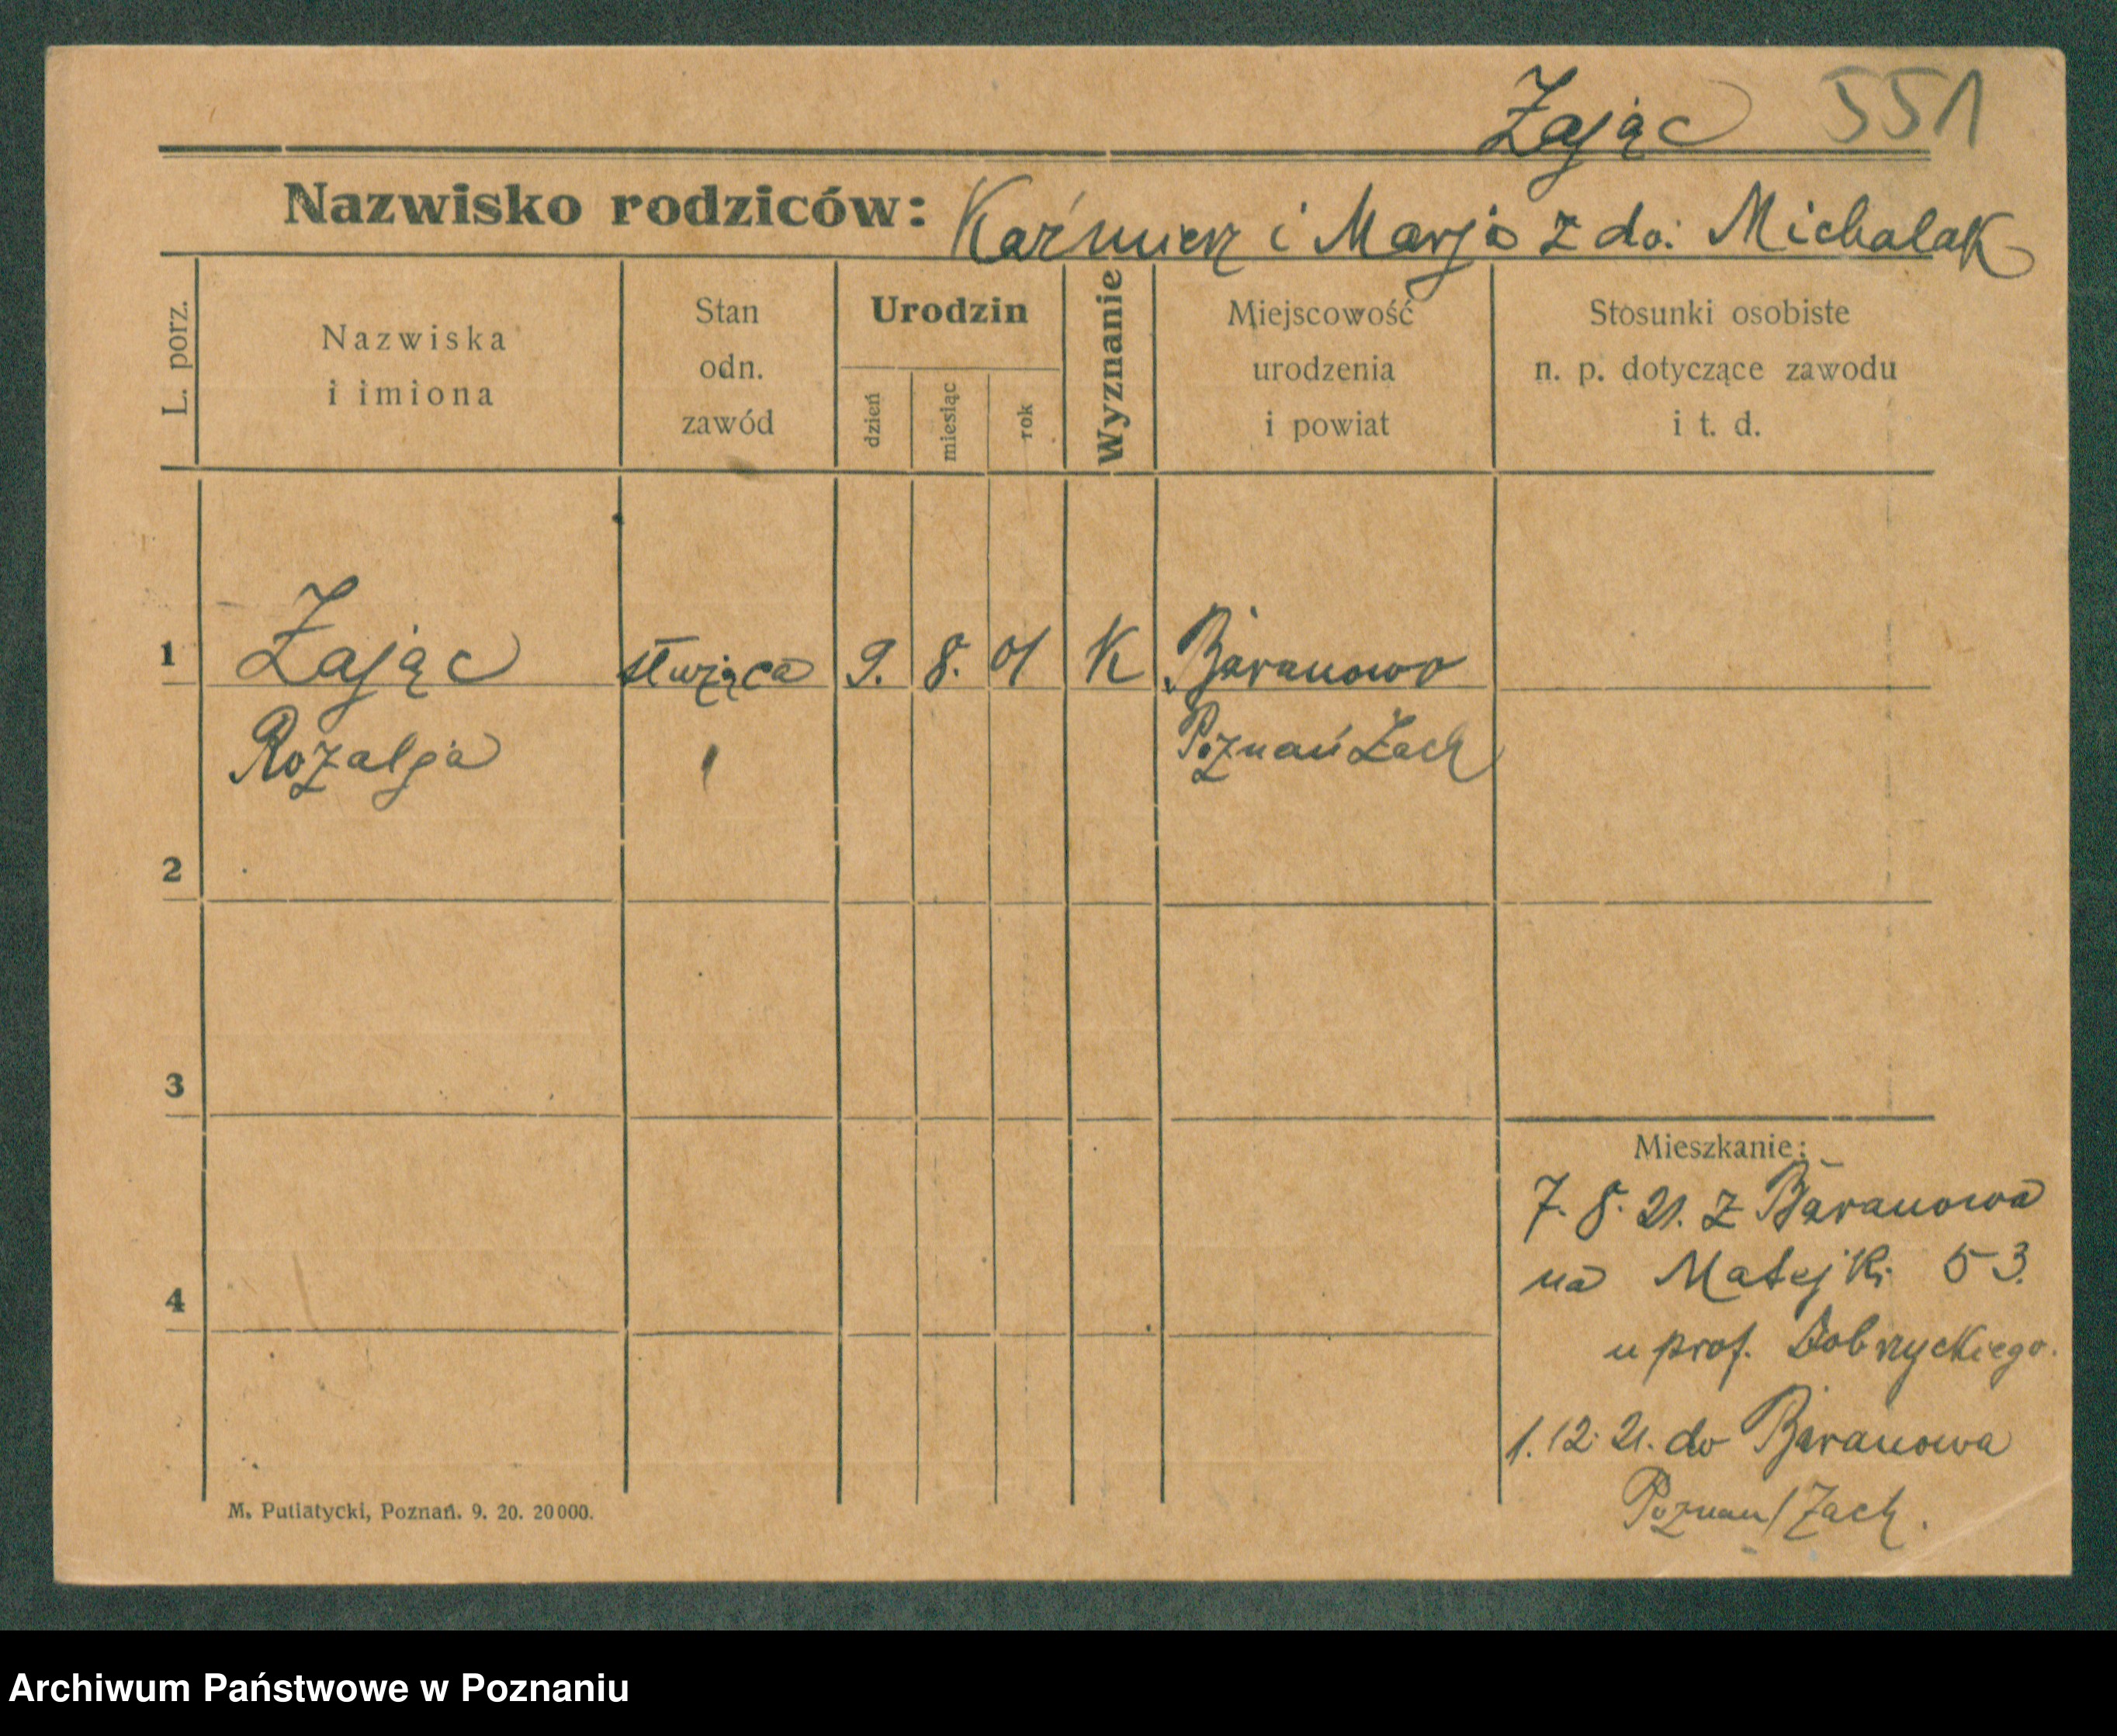 Zając 551
Nazwisko rodziców: Kaźmierz i Marja z do: Michalak
L. porz.
Nazwiska
i imiona
Stan
odn.
zawód
Urodzin
dzień
miesiąc
rok
Wyznanie
Miejscowość
urodzenia
i powiat
Stosunki osobiste
n. p. dotyczące zawodu
i t. d.
1 Zając służąca 9. 8. 01 K Baranowo
Rozalja Poznań Zach
2
3
4
Mieszkanie:
7. 8. 21. z Baranowa
na Matejki 53.
u prof. Dobrzyckiego.
1. 12. 21. do Baranowa
Poznań/Zach.
M. Putiatycki, Poznań. 9. 20. 20000.
Archiwum Państwowe w Poznaniu